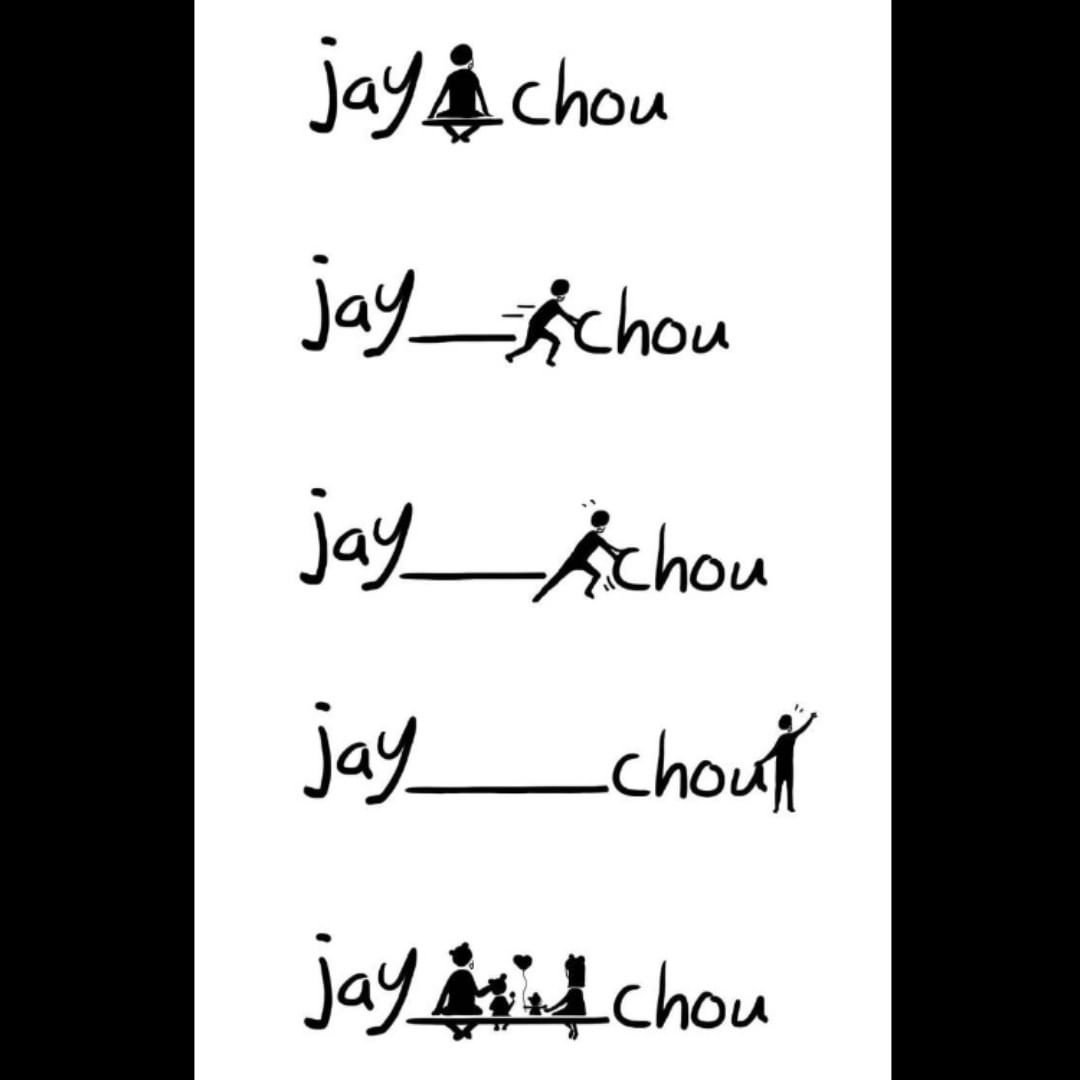 jay chou
jay__chou
jay___chou
jay____chou
jay____chou